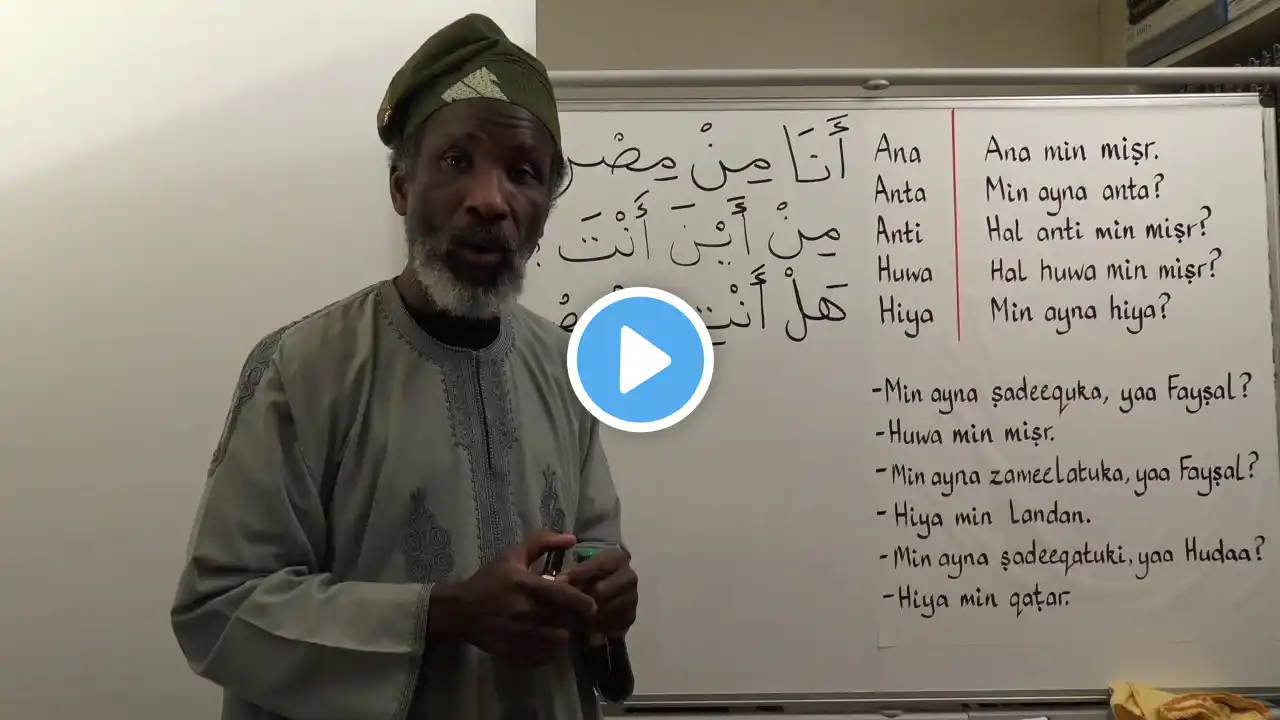 أَنَا مِنْ مِصْر
مِنْ أَيْنَ أَنْتَ ؟
هَلْ أَنْتِ
Ana
Anta
Anti
Huwa
Hiya
Ana min miṣr.
Min ayna anta?
Hal anti min miṣr?
Hal huwa min miṣr?
Min ayna hiya?
-Min ayna ṣadeequka, yaa Fayṣal?
-Huwa min miṣr.
-Min ayna zameelatuka, yaa Fayṣal?
-Hiya min Landan.
-Min ayna ṣadeeqatuki, yaa Hudaa?
-Hiya min qaṭar.